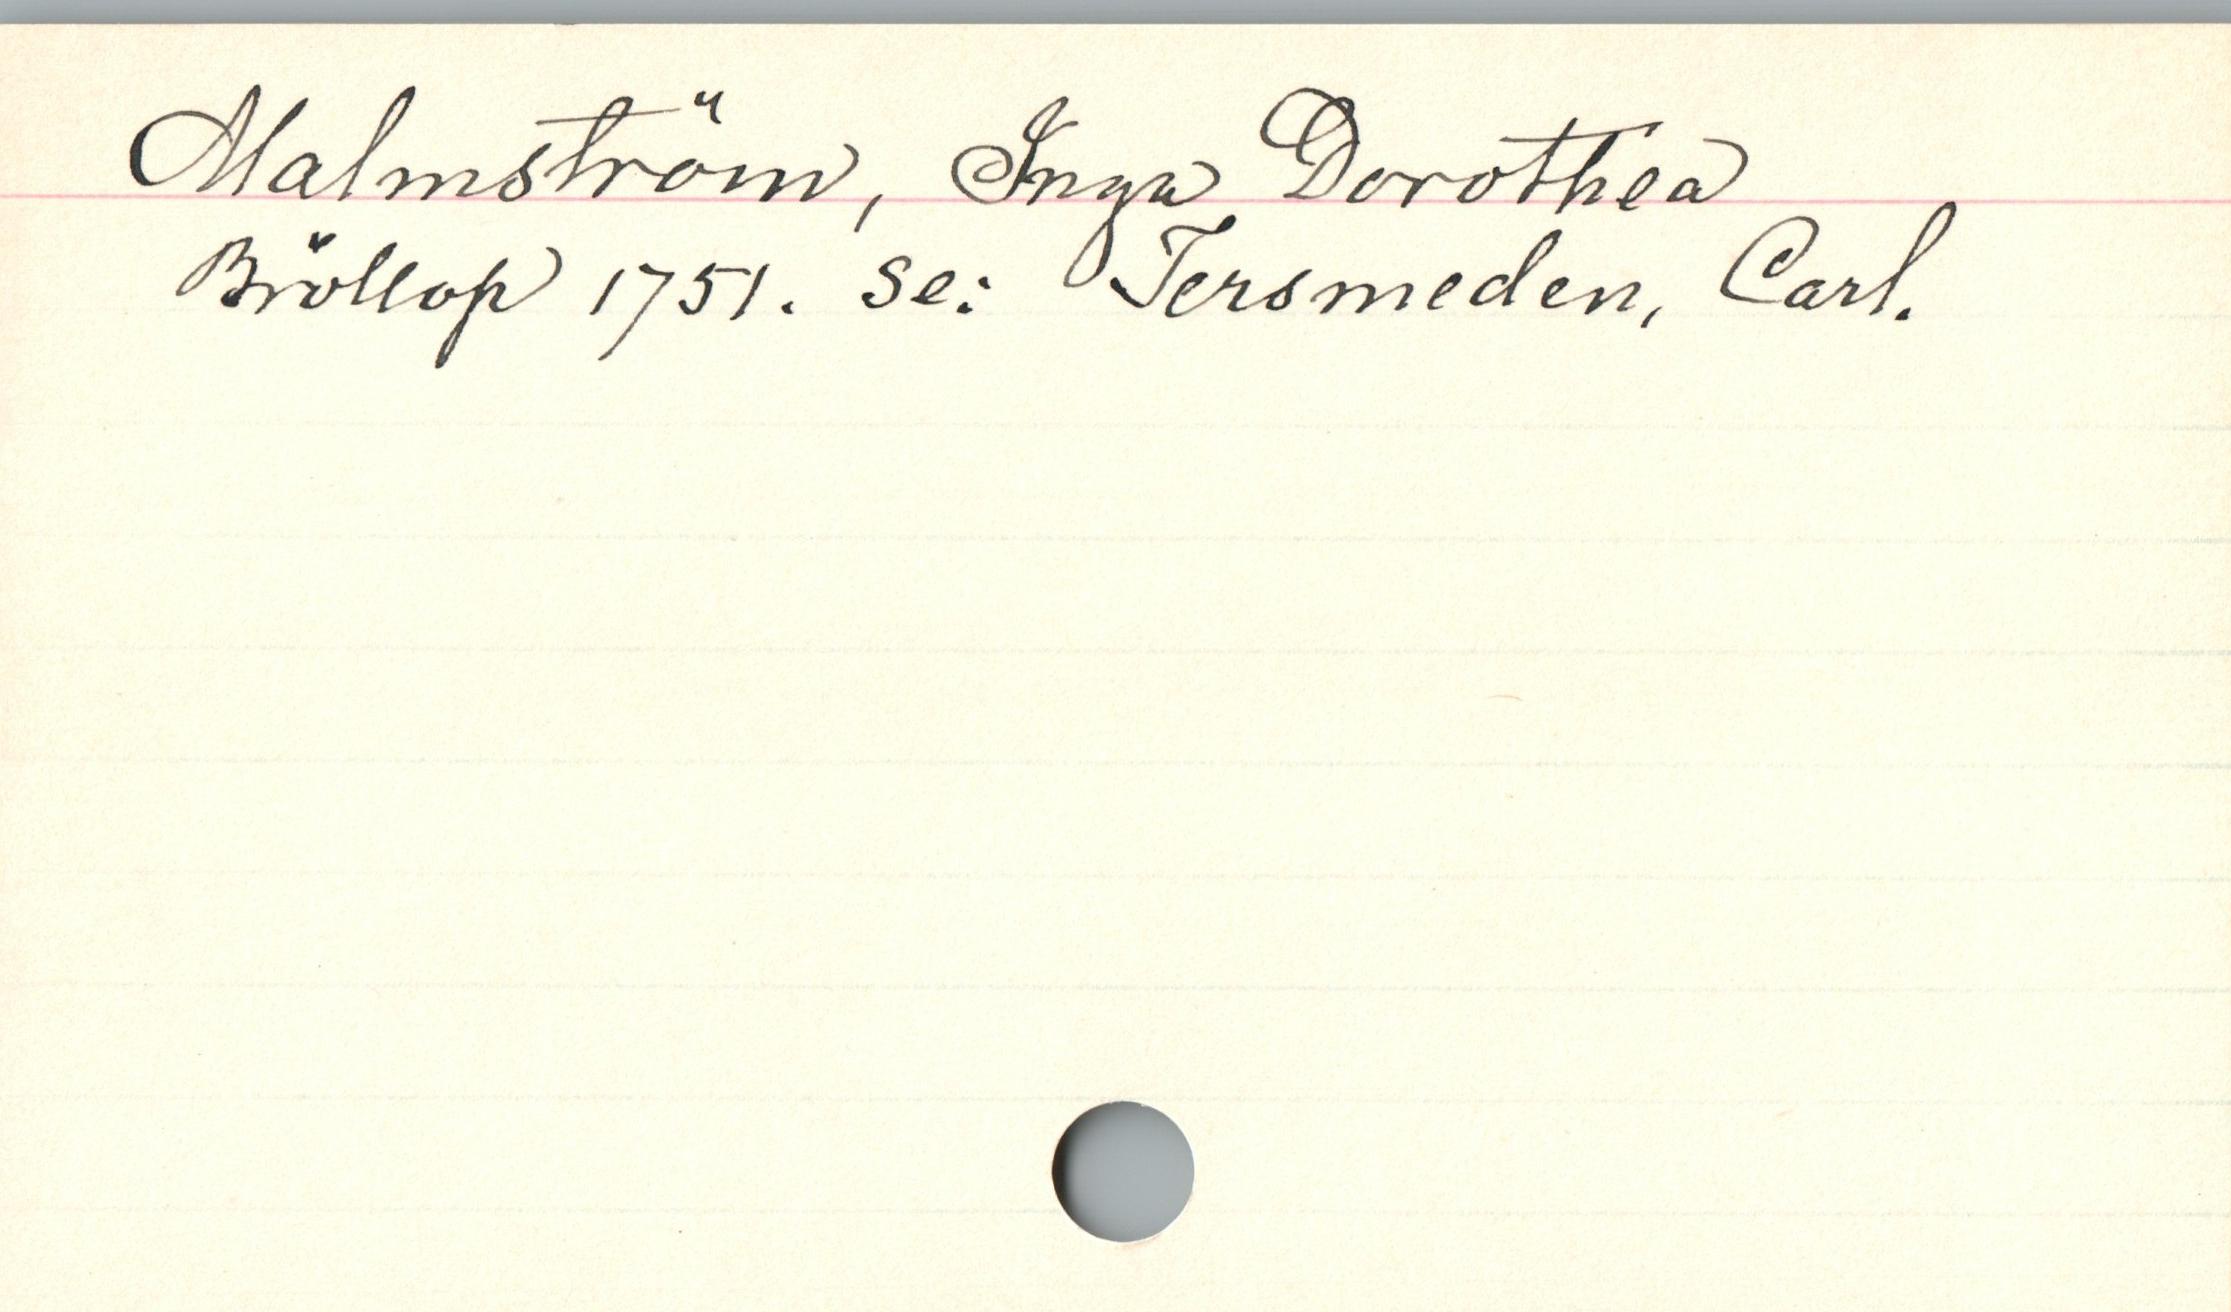 Malmström, Inga Dorothea
Bröllop 1751. se: Tersmeden, Carl.